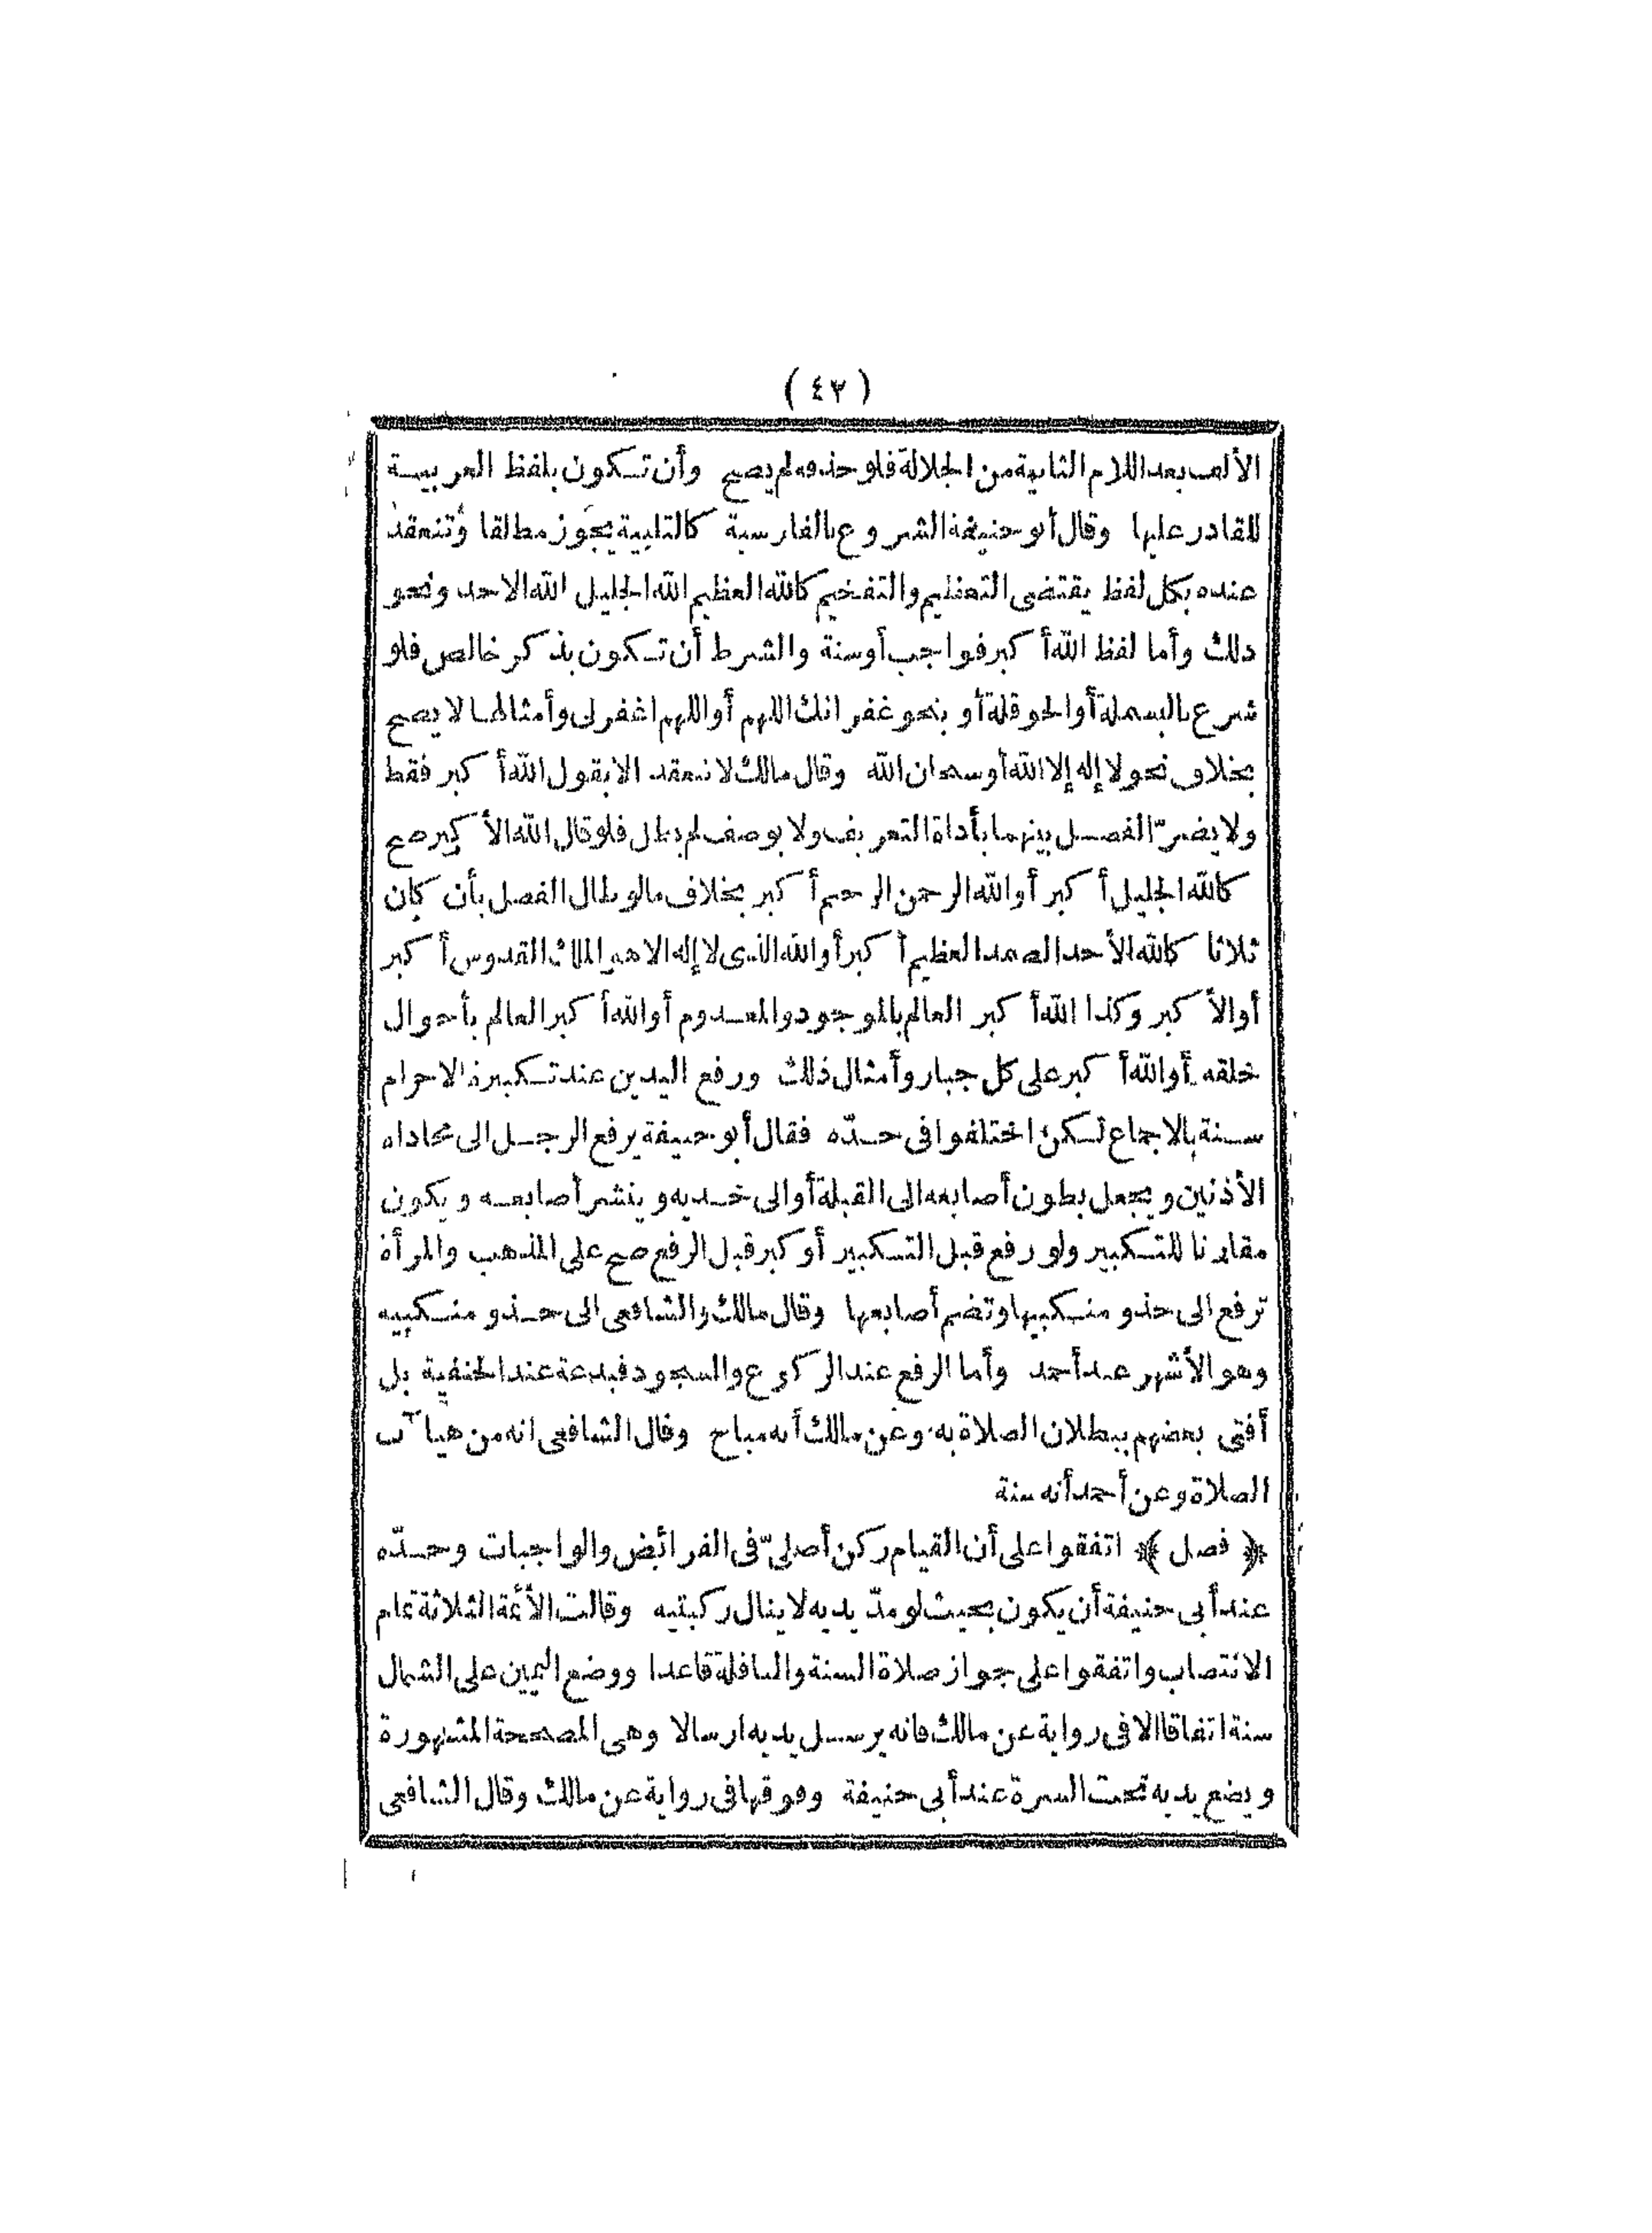 ( ٤٣ )
الألف بعد اللام الثانية من الجلالة فلو حذفه لم يصح وأن تكون بلفظ العربية
للقادر عليها وقال أبو حنيفة الشروع بالفارسية كالتلبية يجوز مطلقا وتنعقد
عنده بكل لفظ يقتضى التعظيم والتفخيم كالله العظيم الله الجليل الله الاحد ونحو
ذلك وأما لفظ الله أكبر فواجب أوسنة والشرط أن تكون بذكر خالص فلو
شرع بالبسملة أوالحوقلة أو بنحو غفرانك اللهم أو اللهم اغفرلى وأمثالها لا يصح
بخلاف نحو لا إله إلا الله أوسبحان الله وقال مالك لا تنعقد الا بقول الله أكبر فقط
ولا يضرّ الفصل بينهما بأداة التعريف ولا بوصف لم يطل فلو قال الله الأكبر صح
كالله الجليل أكبر أو الله الرحمن الرحيم أكبر بخلاف مالو طال الفصل بأن كان
ثلاثا كالله الأحد الصمد العظيم أكبر أو الله الذى لا إله الا هو الملك القدوس أكبر
أو الأكبر وكذا الله أكبر العالم بالموجود والمعدوم أو الله أكبر العالم بأحوال
خلقه أو الله أكبر على كل جبار وأمثال ذلك ورفع اليدين عند تكبيرة الاحرام
سنة بالاجماع لكن اختلفوا فى حدّه فقال أبو حنيفة يرفع الرجل الى محاذاه
الأذنين ويجعل بطون أصابعه الى القبلة أو الى خديه وينشر أصابعه ويكون
مقارنا للتكبير ولو رفع قبل التكبير أو كبر قبل الرفع صح على المذهب والمرأة
ترفع الى حذو منكبيها وتضم أصابعها وقال مالك والشافعى الى حذو منكبيه
وهو الأشهر عند أحمد وأما الرفع عند الركوع والسجود فبدعة عند الحنفية بل
أفتى بعضهم ببطلان الصلاة به وعن مالك أنه مباح وقال الشافعى انه من هيآت
الصلاة وعن أحمد أنه سنة
﴿ فصل ﴾ اتفقوا على أن القيام ركن أصلىّ فى الفرائض والواجبات وحدّه
عند أبى حنيفة أن يكون بحيث لو مدّ يديه لا ينال ركبتيه وقالت الأئمة الثلاثة تمام
الانتصاب واتفقوا على جواز صلاة السنة والنافلة قاعدا ووضع اليمين على الشمال
سنة اتفاقا الا فى رواية عن مالك فانه يرسل يديه ارسالا وهى المصححة المشهورة
ويضع يديه تحت السرة عند أبى حنيفة وفوقها فى رواية عن مالك وقال الشافعى